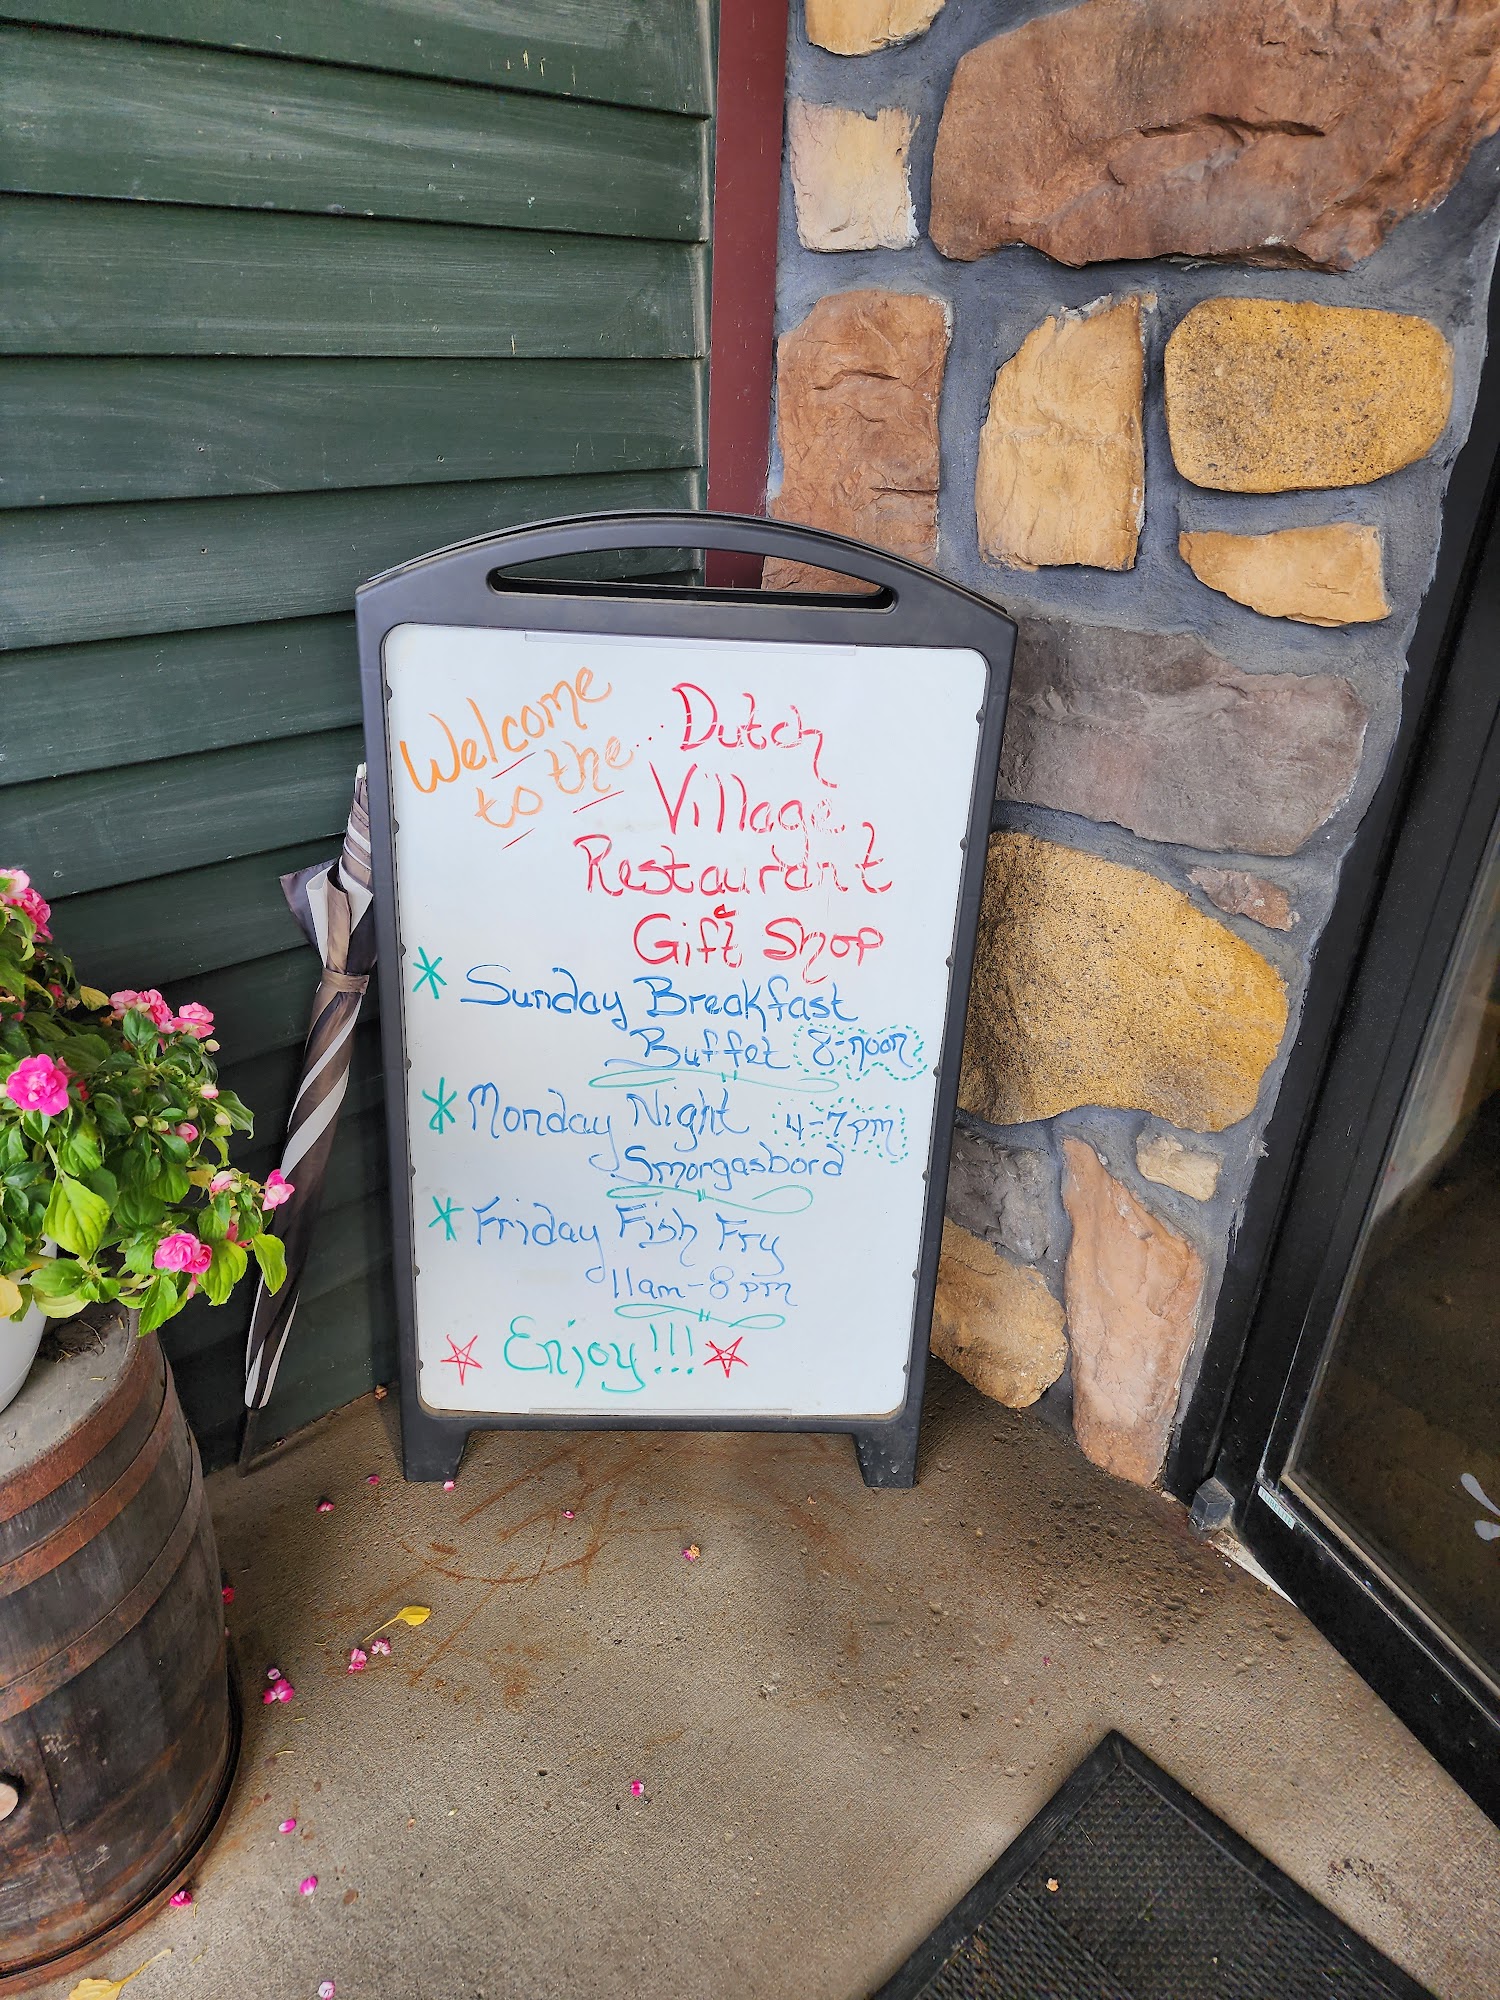 Welcome
to the...
Dutch
Village
Restaurant
Gift Shop
* Sunday Breakfast
Buffet 8-noon
* Monday Night 4-7pm
Smorgasbord
* Friday Fish Fry
11am-8pm
Enjoy!!!